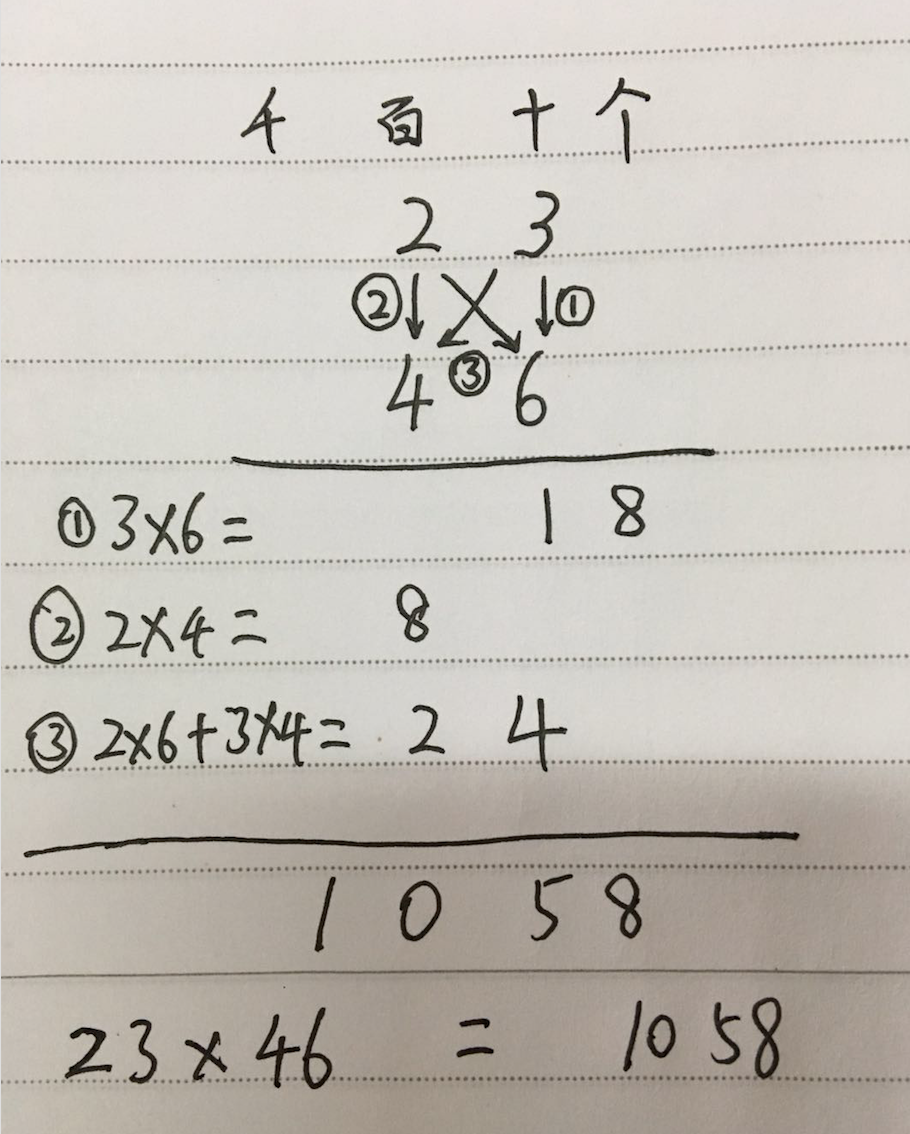 千 百 十 个
2 3
② ↓ ↓ ①
4 ③ 6
① 3×6= 1 8
② 2×4= 8
③ 2×6+3×4= 2 4
1 0 5 8
23×46 = 1058